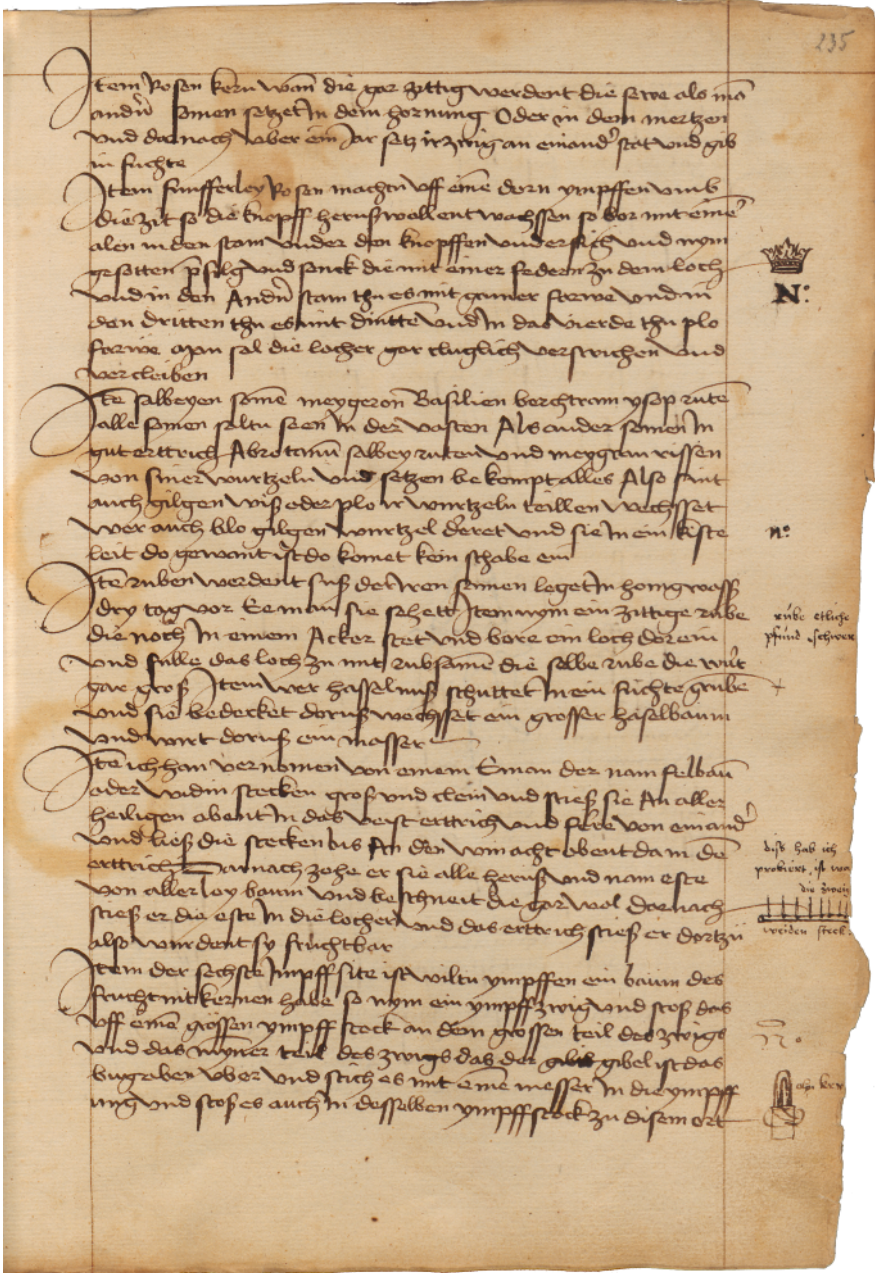 235
Item Rosen kern wan̄ die gar zittig werdent die sewe als mā
andn̄ somen setzet In dem hornung Oder in dem mertzen
vnd darnach vber ein Jar setz ir zwig an einand' stat vnd gib
in fuchte
Item funfferley Rosen machen vff eine dorn ympffen vmb
die zit so die knopff heruß wollent wachssen so bor mit eine
alen in den stam vnder den knopffen vndersich vnd nym
gesotten vnd senck die mit einer federn zu dem loch
vnd in den Andn̄ stam thu es mit gruner farwe vnd in
den dritten thu es mit vnd In das vierde thu plo
farwe Man sol die locher gar cluglich verstrichen vnd
vercleiben
Itē salbeyen somē meygeron Basilien berchtram ysop rutē
alle somen soltu seen In der vasten Als ander somen In
gut erttrich Abrotanū salbey ruten vnd meygran rissen
von siner wurtzeln vnd setzen bekompt alles Also sint
auch gilgen wiß oder plo ir wurtzeln teillen wechsset
wer auch blo gilgen wurtzel deret vnd sie In ein kiste
leit do gewant ist do komet kein schabe ein
Itē ruben werdent suß der iren somen leget In honigwasß
dry tag vor Ee man sie sehett Item nym ein zittige rube
die noch In einem Acker stet vnd bore ein loch dorein
vnd fulle das loch zu mit rubsamē die selbe rube die wurt
gar groß Item wer hasselnuß schuttet In ein fuchte grube
vnd sie bedecket doruß wechsset ein grosser haselbaum
vnd wirt doruß ein masser
Itē ich han vernomen von einem Eman der nam felbaū
oder widin stecken groß vnd clein vnd stieß sie An aller
heiligen obent In das veist erttrich vnd ferre von einand'
vnd ließ die stecken bis An den winacht obent da in dē
erttrich Darnach zohe er sie alle heruß vnd nam este
von allerley baum vnd beschneit die gar wol darnach
stieß er die este In die locher vnd das erttrich stieß er dortzu
also wurdent sy fruchtbar
Item der sechste Impff site ist wiltu ympffen ein baum des
frucht nit kernen habe so nym ein ympff zwig vnd stoß das
vff einen grossen ympff stock an dem grossen teil des zwigs
vnd das mynner teil des zwigs das der gibel ist das
bugeben vber vnd stich es mit eine messer In die ympff
ung vnd stoß es auch In desselben ympffstock zu disem ort
N:
n°
rube etliche
pfund schwer
diß hab ich
probiert, ist
die zweig
weiden steck
on kern